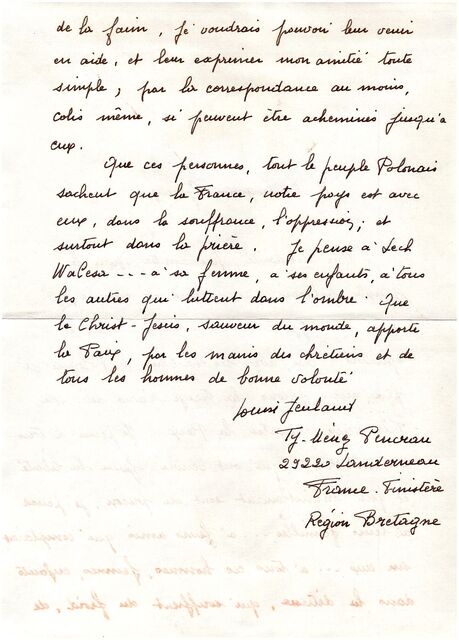 de la faim, je voudrais pouvoir leur venir
en aide, et leur exprimer mon amitié toute
simple, par la correspondance au moins,
colis même, si peuvent être acheminés jusqu'à
eux.
Que ces personnes, tout le peuple Polonais
sachent que la France, notre pays est avec
eux, dans la souffrance, l'oppression, et
surtout dans la prière. Je pense à Lech
Walesa --- à sa femme, à ses enfants, à tous
les autres qui luttent dans l'ombre. Que
le Christ-Jésus, sauveur du monde, apporte
la Paix, par les mains des chrétiens et de
tous les hommes de bonne volonté
Louise
Ty-Névez Pencran
29220 Landerneau
France - Finistère
Région Bretagne